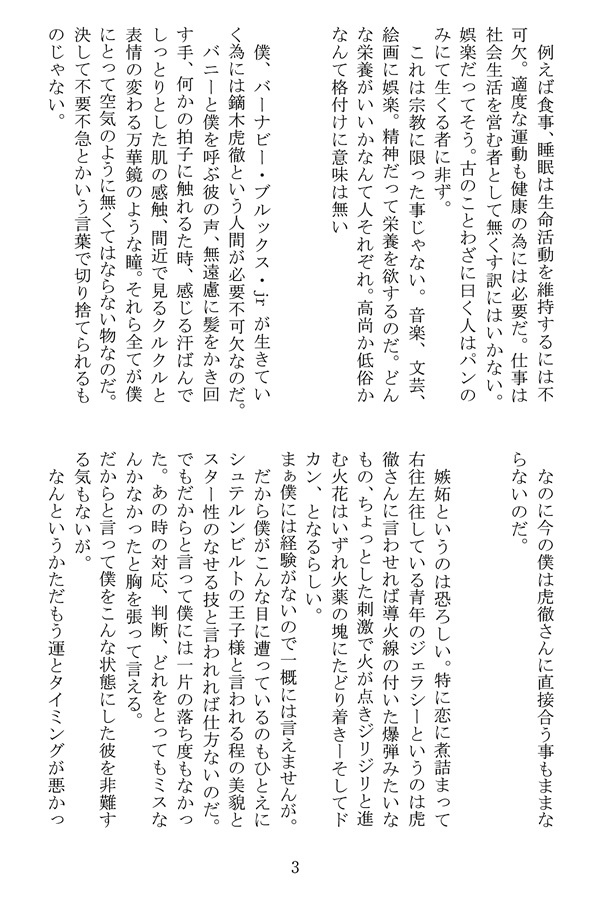 例えば食事、睡眠は生命活動を維持するには不
可欠。適度な運動も健康の為には必要だ。仕事は
社会生活を営む者として無くす訳にはいかない。
娯楽だってそう。古のことわざに曰く人はパンの
みにて生くる者に非ず。
これは宗教に限った事じゃない。音楽、文芸、
絵画に娯楽。精神だって栄養を欲するのだ。どん
な栄養がいいかなんて人それぞれ。高尚か低俗か
なんて格付けに意味は無い
僕、バーナビー・ブルックス・jr が生きてい
く為には鏑木虎徹という人間が必要不可欠なのだ。
バニーと僕を呼ぶ彼の声、無遠慮に髪をかき回
す手、何かの拍子に触れるた時、感じる汗ばんで
しっとりとした肌の感触、間近で見るクルクルと
表情の変わる万華鏡のような瞳。それら全てが僕
にとって空気のように無くてはならない物なのだ。
決して不要不急とかいう言葉で切り捨てられるも
のじゃない。
なのに今の僕は虎徹さんに直接合う事もままな
らないのだ。
嫉妬というのは恐ろしい。特に恋に煮詰まって
右往左往している青年のジェラシーというのは虎
徹さんに言わせれば導火線の付いた爆弾みたいな
もの、ちょっとした刺激で火が点きジリジリと進
む火花はいずれ火薬の塊にたどり着きーそしてド
カン、となるらしい。
まぁ僕には経験がないので一概には言えませんが。
だから僕がこんな目に遭っているのもひとえに
シュテルンビルトの王子様と言われる程の美貌と
スター性のなせる技と言われれば仕方ないのだ。
でもだからと言って僕には一片の落ち度もなかっ
た。あの時の対応、判断、どれをとってもミスな
んかなかったと胸を張って言える。
だからと言って僕をこんな状態にした彼を非難す
る気もないが。
なんというかただもう運とタイミングが悪かっ
3